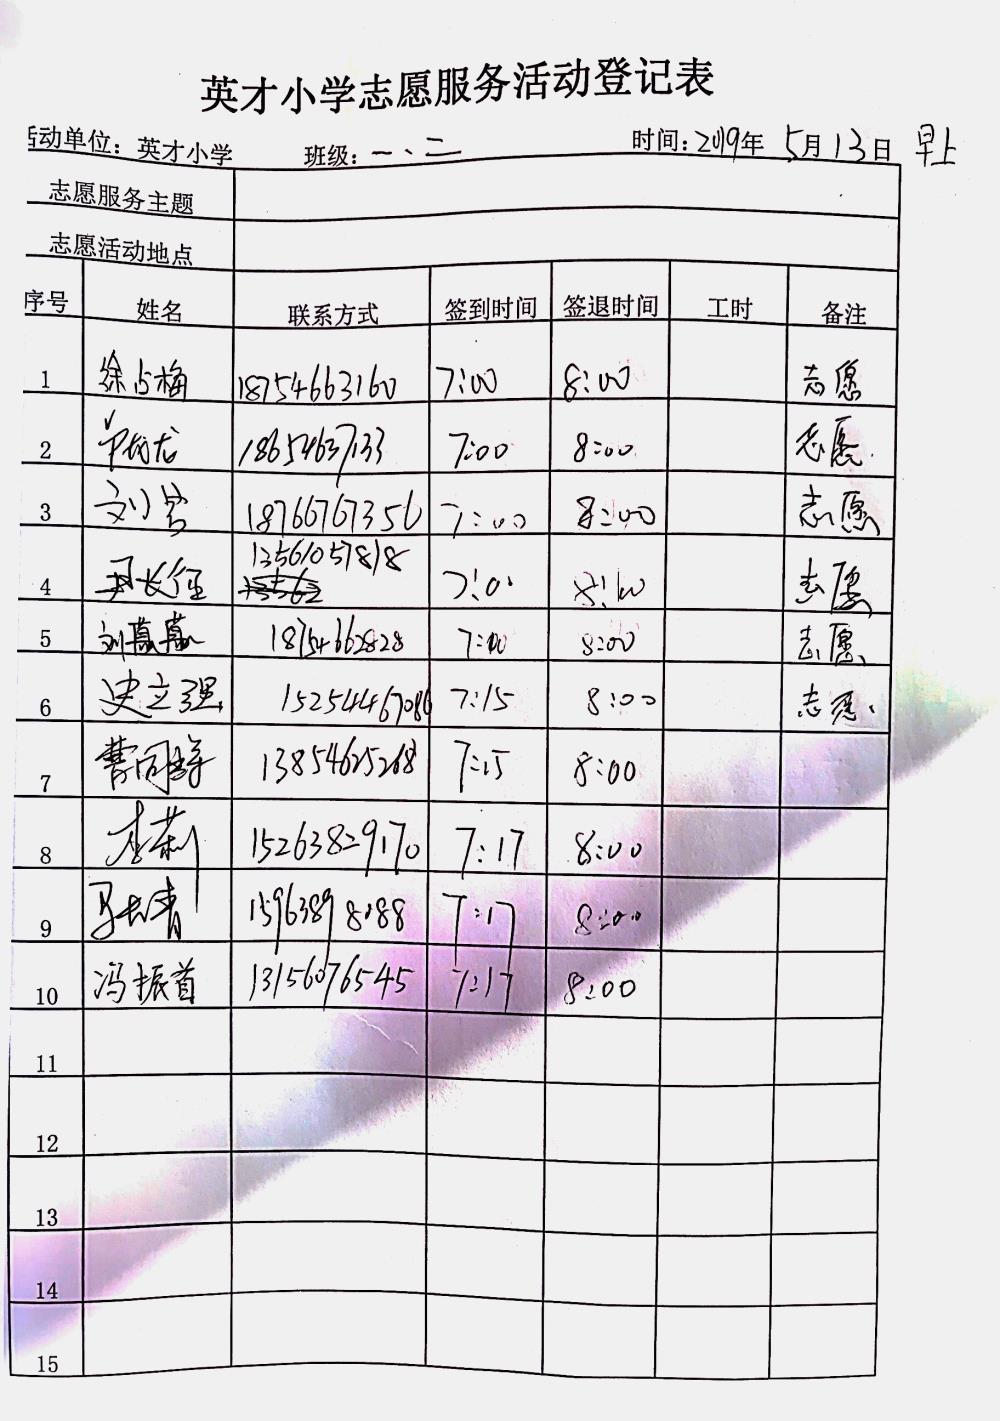 英才小学志愿服务活动登记表
活动单位：英才小学 班级：一、二 时间：2019年 5月13日 早上
志愿服务主题
志愿活动地点
序号 姓名 联系方式 签到时间 签退时间 工时 备注
1 徐占梅 18754663160 7:00 8:00 志愿
2 18654637133 7:00 8:00 志愿
3 18766767356 7:00 8:00 志愿
13561057818
4 7:00 8:00 志愿
5 刘嘉嘉 18754662828 7:00 8:00 志愿
6 史立强 15254446708 7:15 8:00 志愿
7 13854625268 7:15 8:00
8 15263829170 7:17 8:00
9 15963898088 7:17 8:00
10 冯振首 13156076545 7:17 8:00
11
12
13
14
15